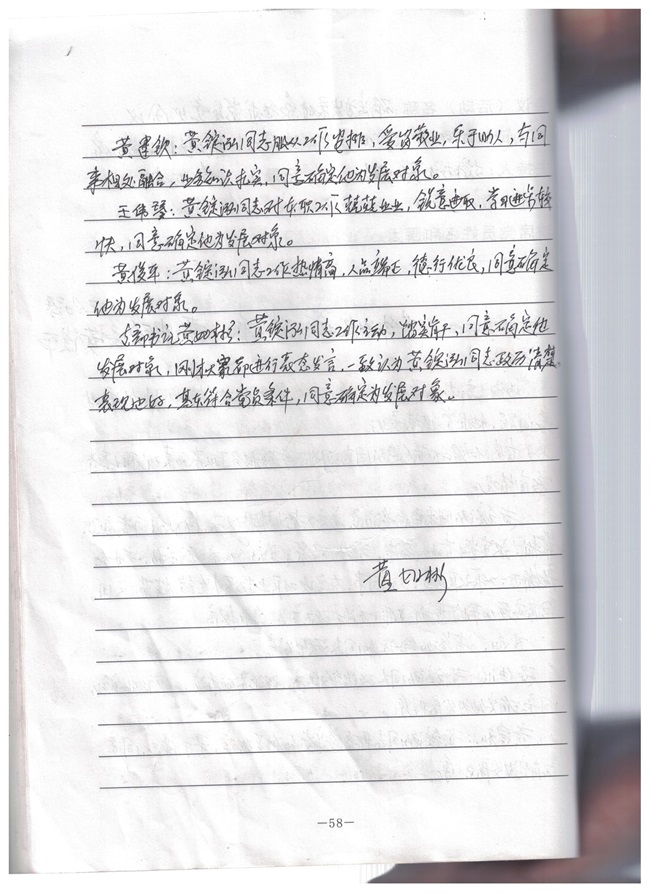 黄建钦：黄锭泓同志服从工作安排，爱岗敬业，乐于助人，与同
事相处融合，业务知识扎实，同意确定他为发展对象。
王伟琴：黄锭泓同志对本职工作兢兢业业，锐意进取，学习进步较
快，同意确定他为发展对象。
黄俊平：黄锭泓同志工作热情高，人品端正，德行优良，同意确定
他为发展对象。
支部书记黄旭彬：黄锭泓同志工作主动，踏实肯干，同意确定他
发展对象，刚才大家都进行表态发言，一致认为黄锭泓同志政历清楚
表现也好，基本符合党员条件，同意确定为发展对象。
黄旭彬
—58—